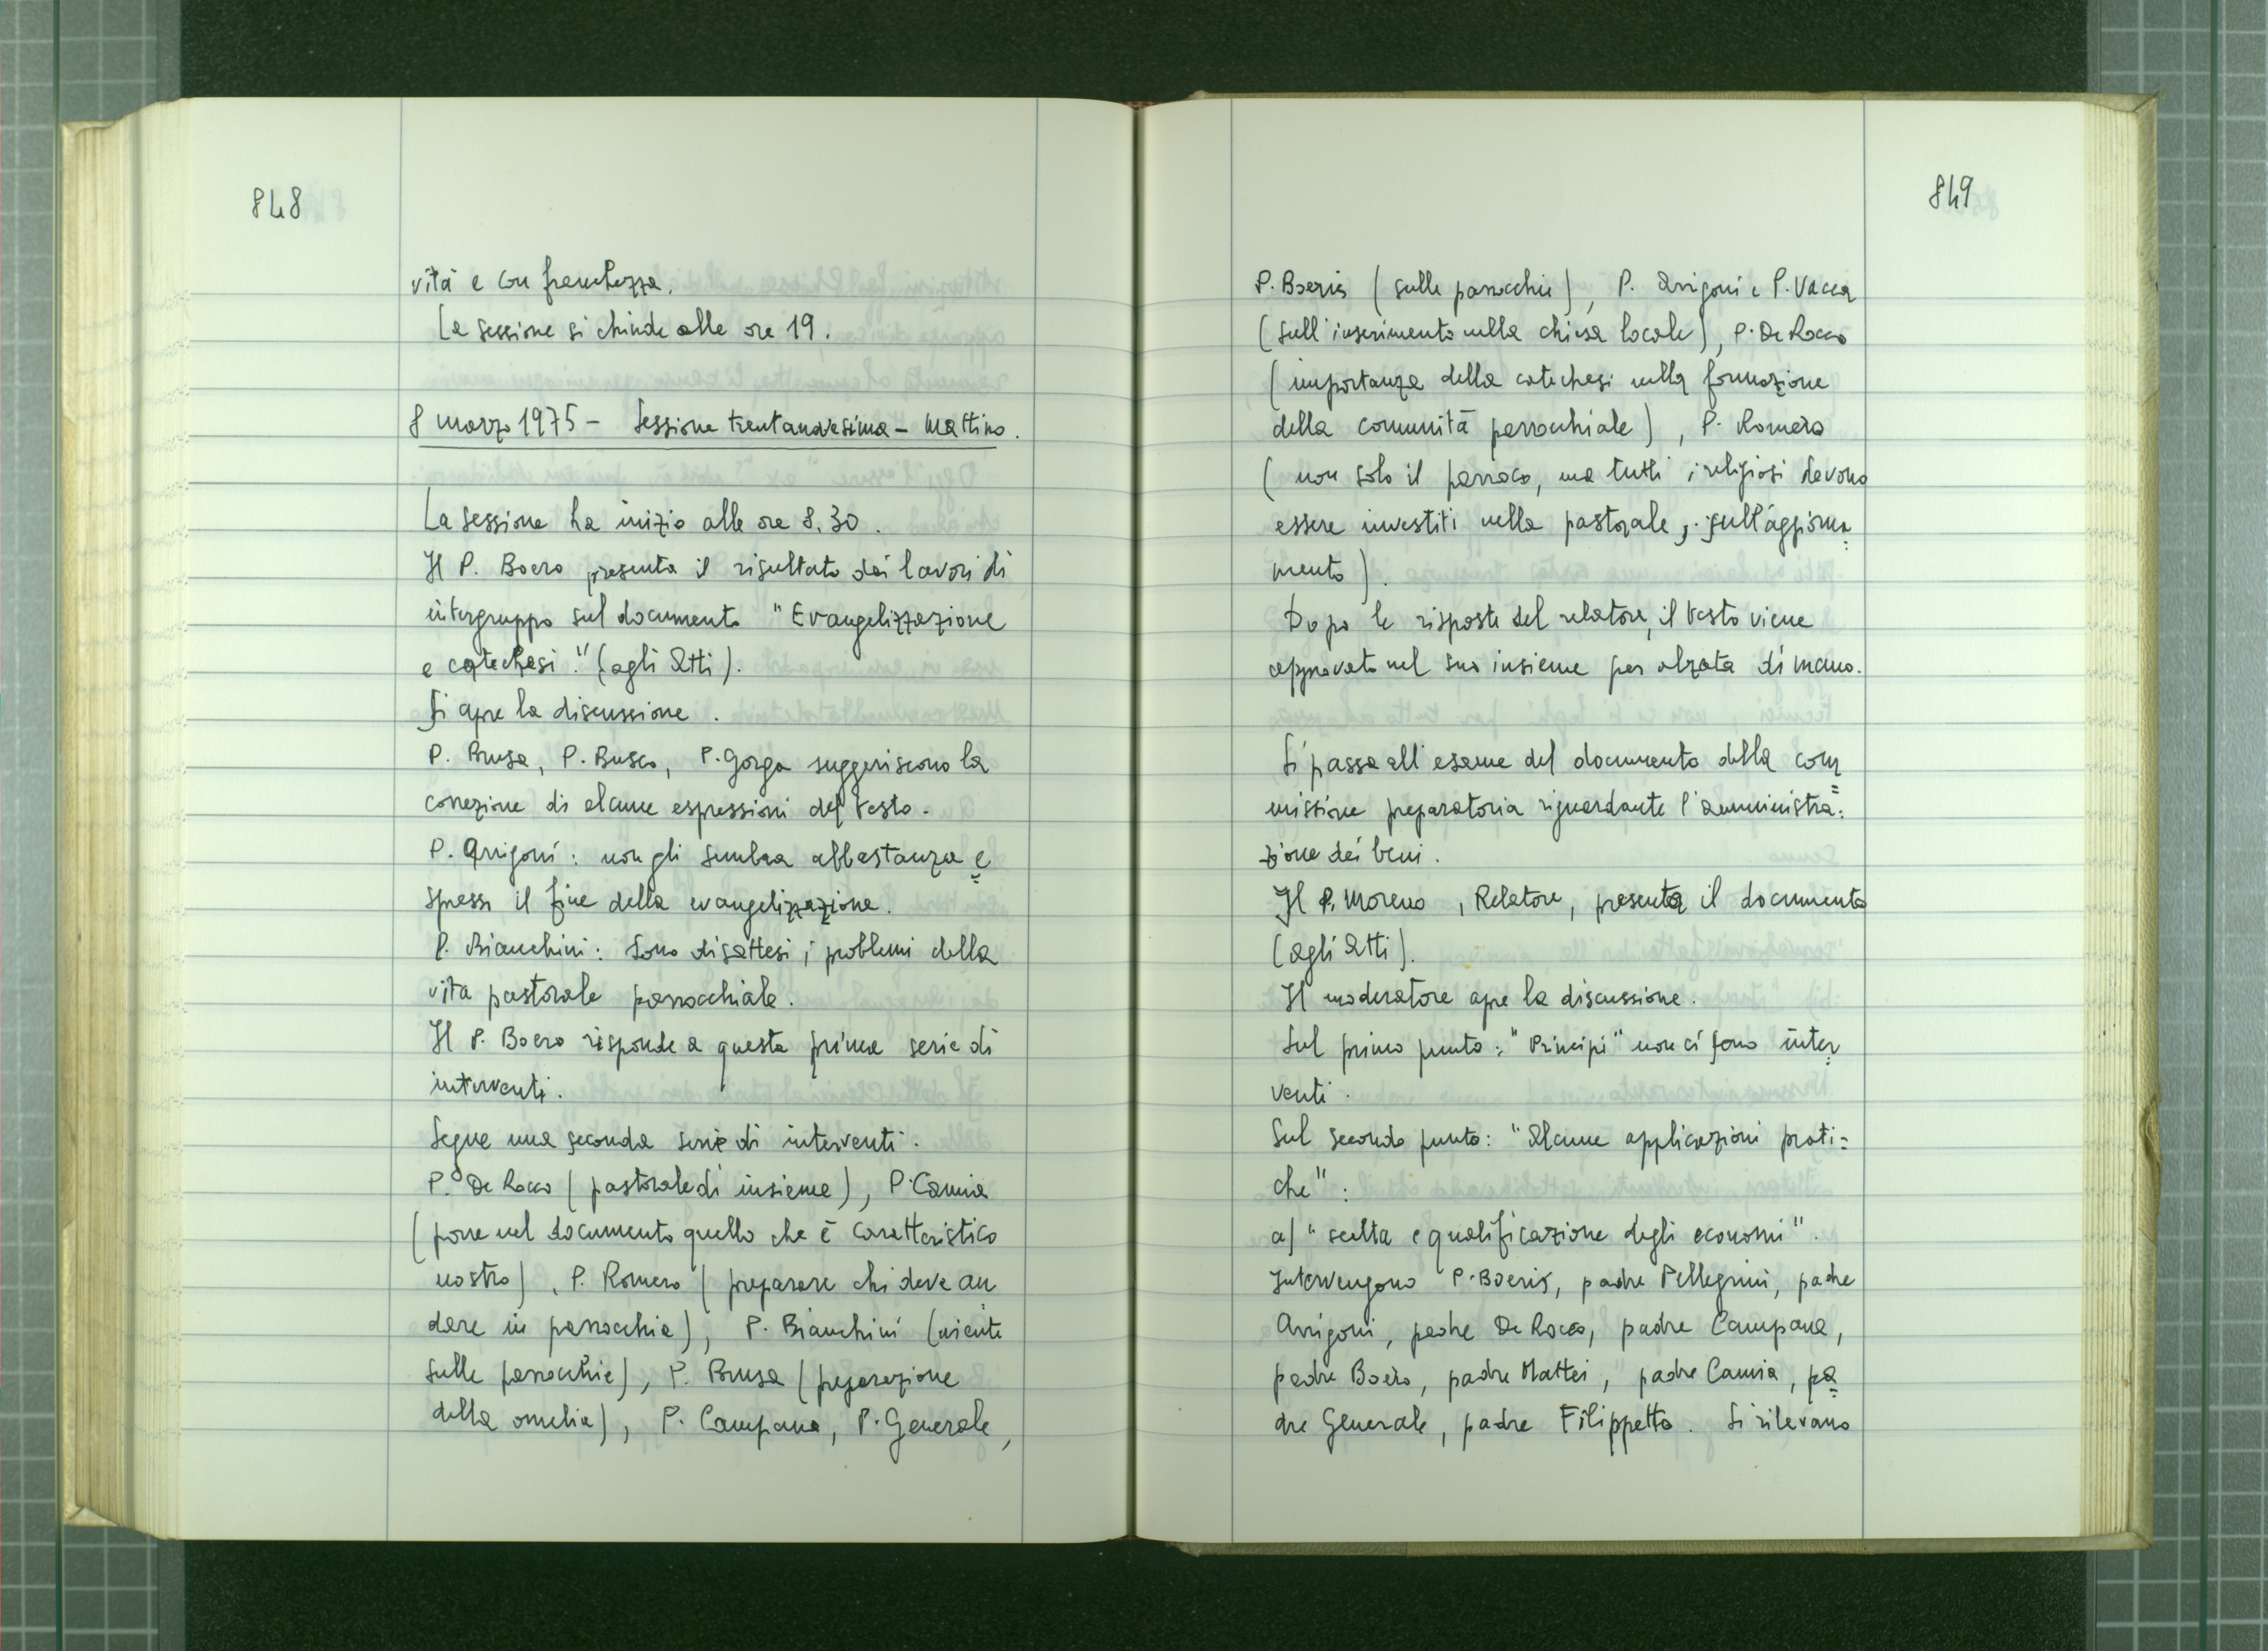 848
vità e con franchezza.
La sessione si chiude alle ore 19.
8 marzo 1975 - Sessione trentanovesima - Mattino.
La sessione ha inizio alle ore 8.30.
Il P. Boero presenta il risultato dei lavori di
intergruppo sul documento "Evangelizzazione
e catechesi." (agli Atti).
Si apre la discussione.
P. Brusa, P. Busco, P. Gorga suggeriscono la
correzione di alcune espressioni del testo.
P. Arrigoni: non gli sembra abbastanza e=
spresso il fine della evangelizzazione.
P. Bianchini: Sono disattesi i problemi della
vita pastorale parrocchiale.
Il P. Boero risponde a questa prima serie di
interventi.
Segue una seconda serie di interventi.
P. De Rocco (pastorale di insieme), P. Camia
(porre nel documento quello che è caratteristico
nostro), P. Romero (preparare chi deve an=
dare in parrocchia), P. Bianchini (niente
sulle parrocchie), P. Brusa (preparazione
della omelia), P. Campana, P. Generale,
849
P. Boeris (sulle parrocchie), P. Arrigoni e P. Vacca
(sull'inserimento nella chiesa locale), P. De Rocco
(importanza della catechesi nella formazione
della comunità parrocchiale), P. Romero
(non solo il parroco, ma tutti i religiosi devono
essere investiti nella pastorale, sull'aggiorna=
mento).
Dopo le risposte del relatore, il testo viene
approvato nel suo insieme per alzata di mano.
Si passa all'esame del documento della com=
missione preparatoria riguardante l'amministra=
zione dei beni.
Il P. Moreno, Relatore, presenta il documento
(agli Atti).
Il moderatore apre la discussione.
Sul primo punto: "Principi" non ci sono inter=
venti.
Sul secondo punto: "Alcune applicazioni prati=
che":
a) "scelta e qualificazione degli economi".
Intervengono P. Boeris, padre Pellegrini, padre
Arrigoni, padre De Rocco, padre Campana,
padre Boero, padre Mattei, padre Camia, pa=
dre Generale, padre Filippetto. Si rilevano